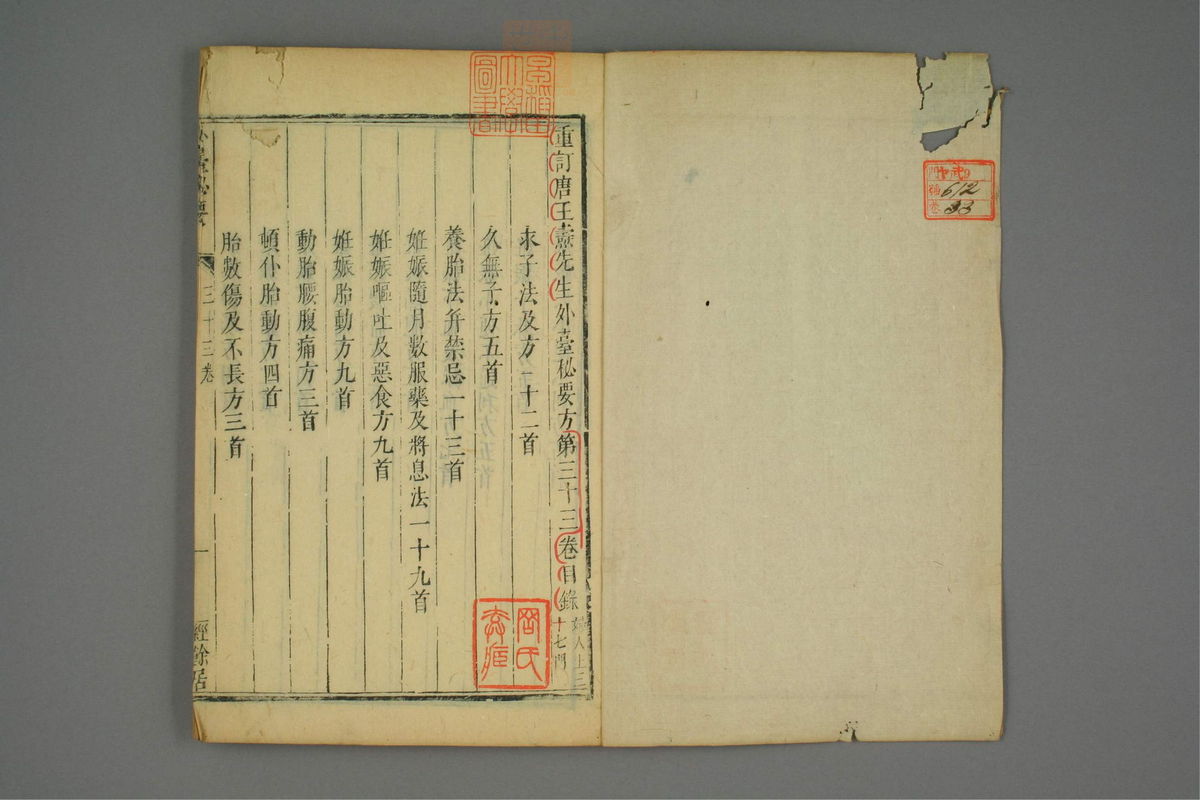 重訂唐王燾先生外臺秘要方第三十三卷目錄 婦人上三十七門
求子法及方一十二首
久無子方五首
養胎法幷禁忌一十三首
姙娠隨月數服藥及將息法一十九首
姙娠嘔吐及惡食方九首
姙娠胎動方九首
動胎腰腹痛方三首
頓仆胎動方四首
胎數傷及不長方三首
臺秘要
三十三卷
一
經餘居
612
33